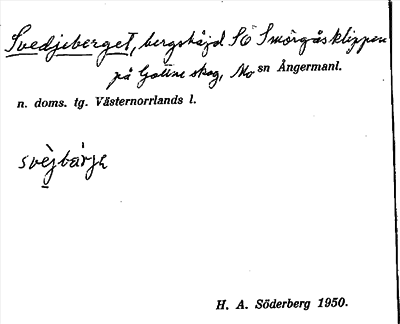 Svedjeberget, bergshöjd SÖ Smörgåsklippen
på Gottne skog, Mo sn Ångermanl.
n. doms. tg. Västernorrlands l.
svèjbär̀jə
H. A. Söderberg 1950.